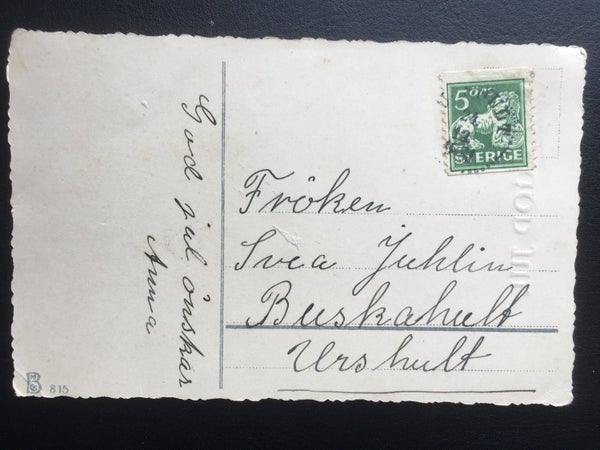 God jul önskar
Anna
5 ÖRE
SVERIGE
Fröken
Svea Juhlin
Buskahult
Urshult
815